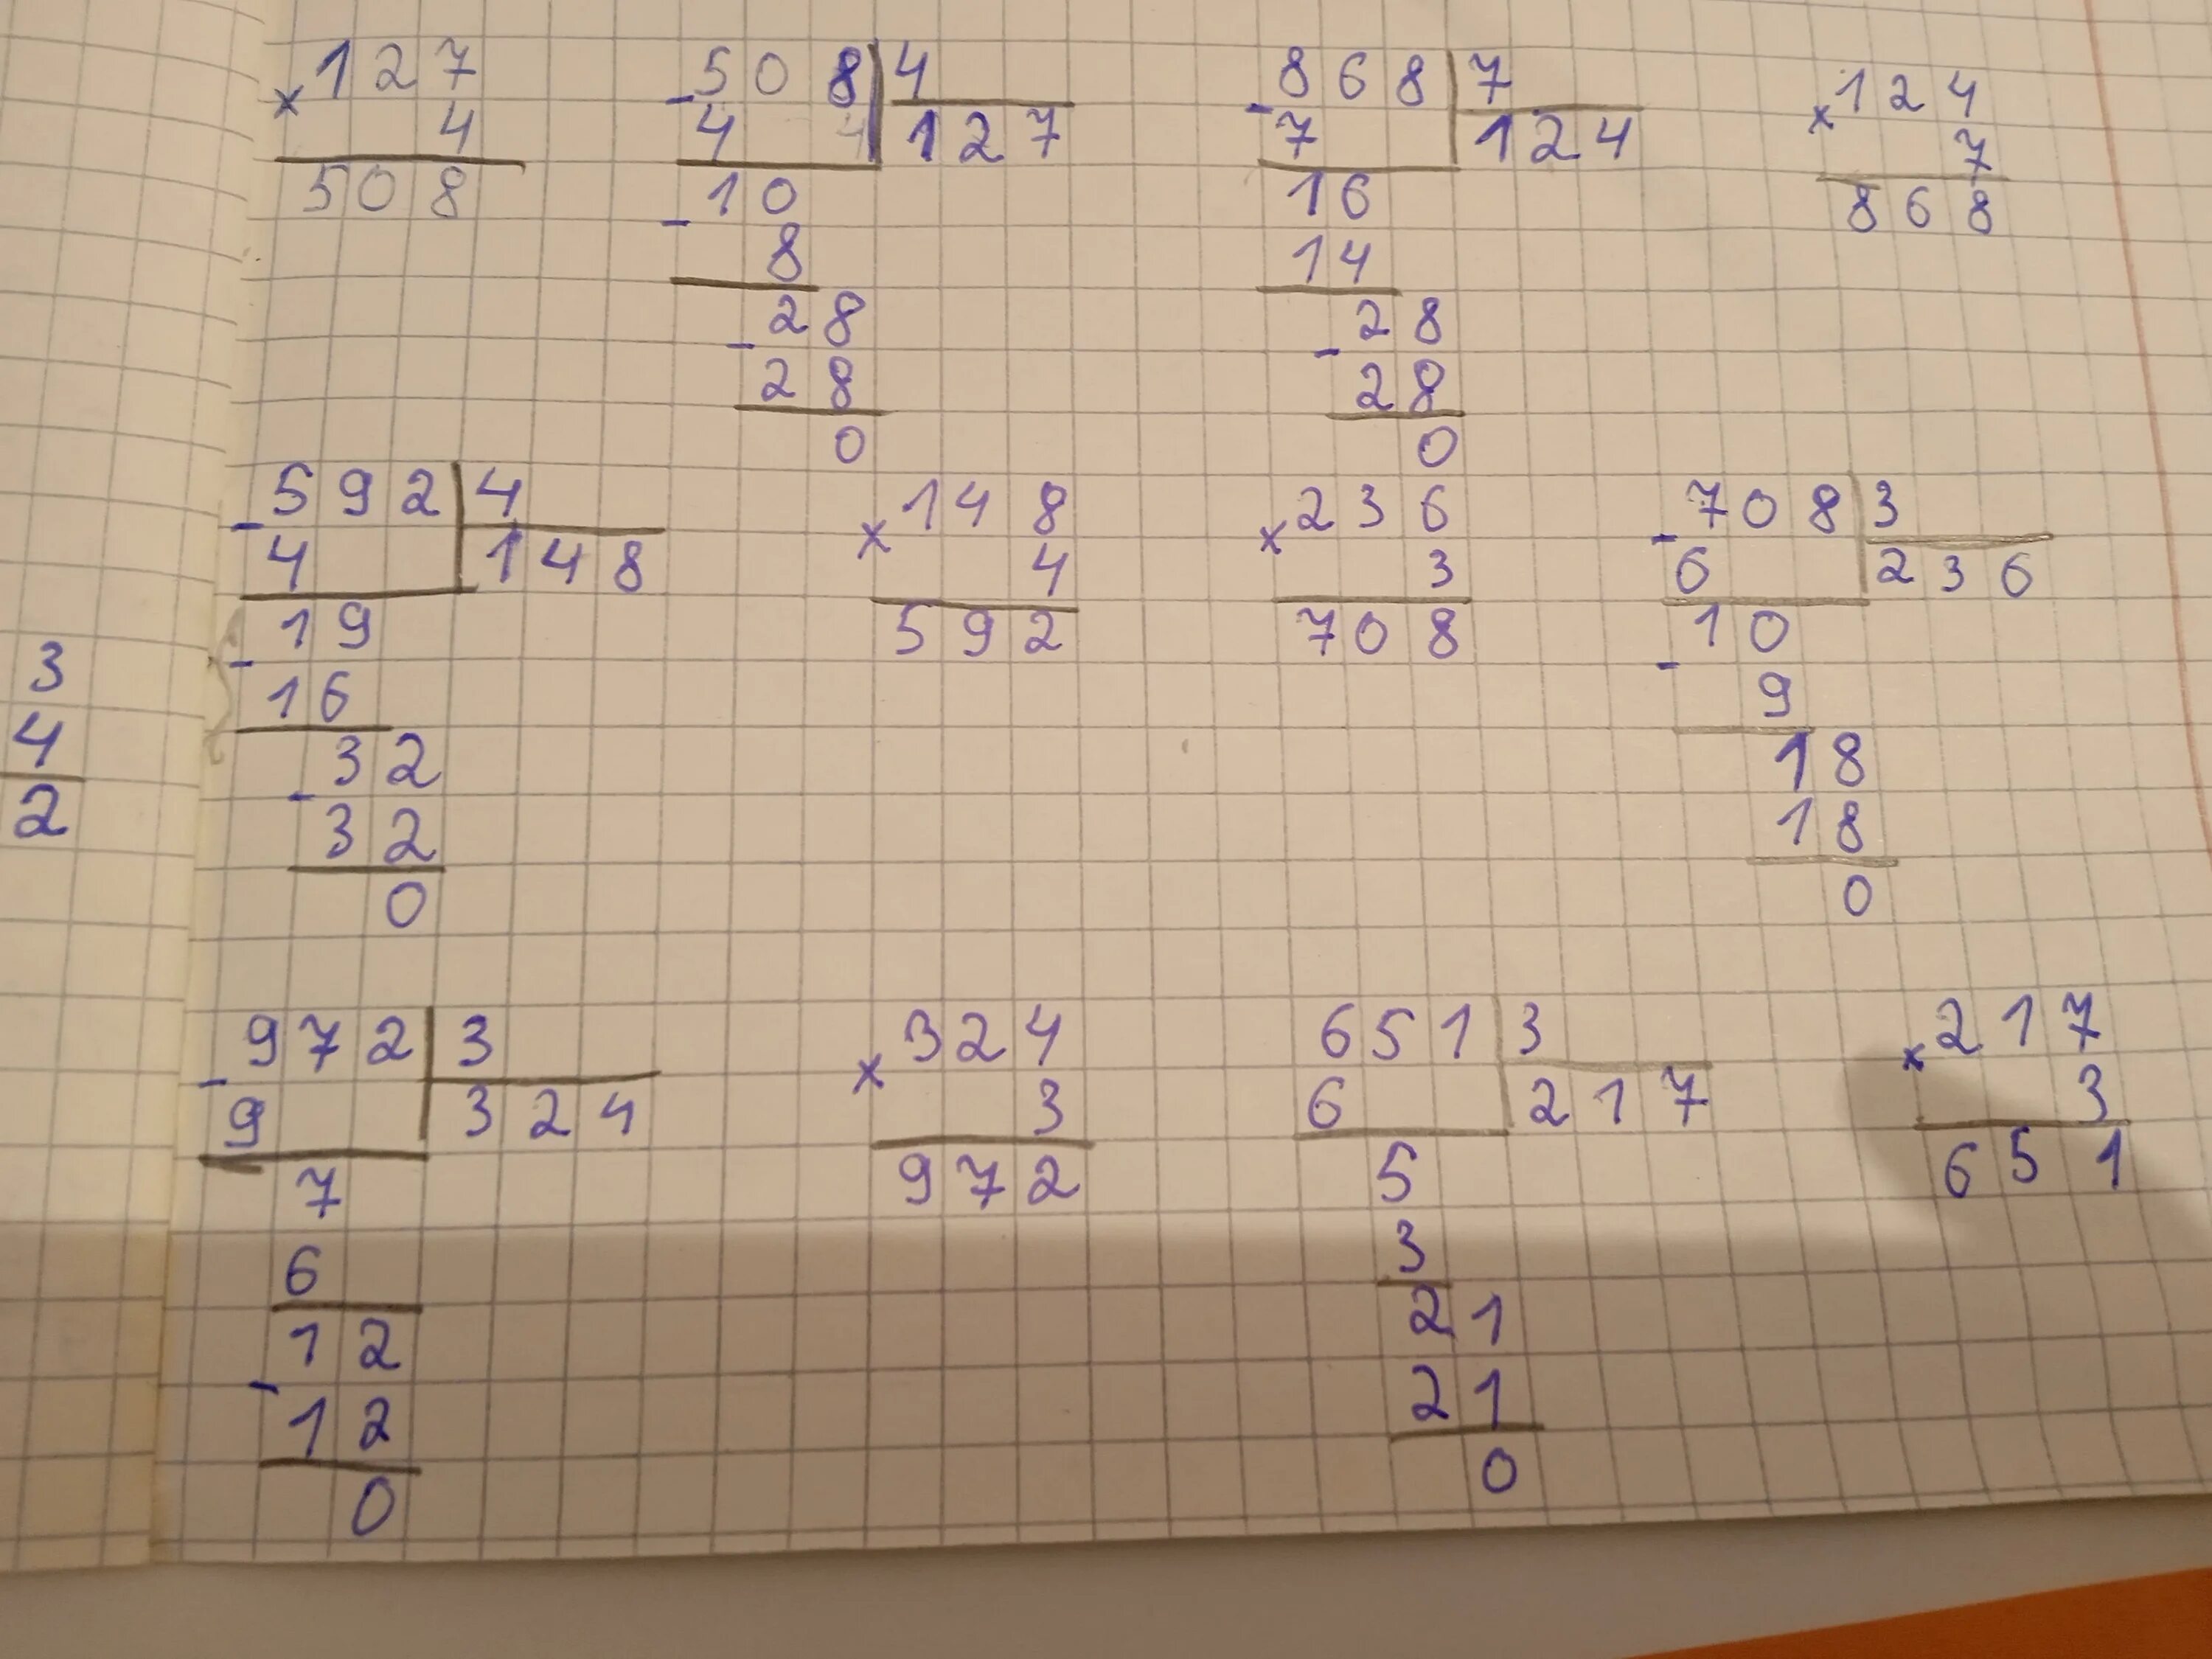 × 127
4
508
- 508 | 4
4 4 | 127
- 10
8
- 28
28
0
- 868 | 7
7 | 124
16
14
- 28
28
0
× 124
7
868
- 592 | 4
4 | 148
- 19
16
- 32
32
0
× 148
4
592
× 236
3
708
- 708 | 3
6 | 236
- 10
9
18
18
0
3
4
2
- 972 | 3
9 | 324
7
6
- 12
12
0
× 324
3
972
651 | 3
6 | 217
5
3
21
21
0
× 217
3
651